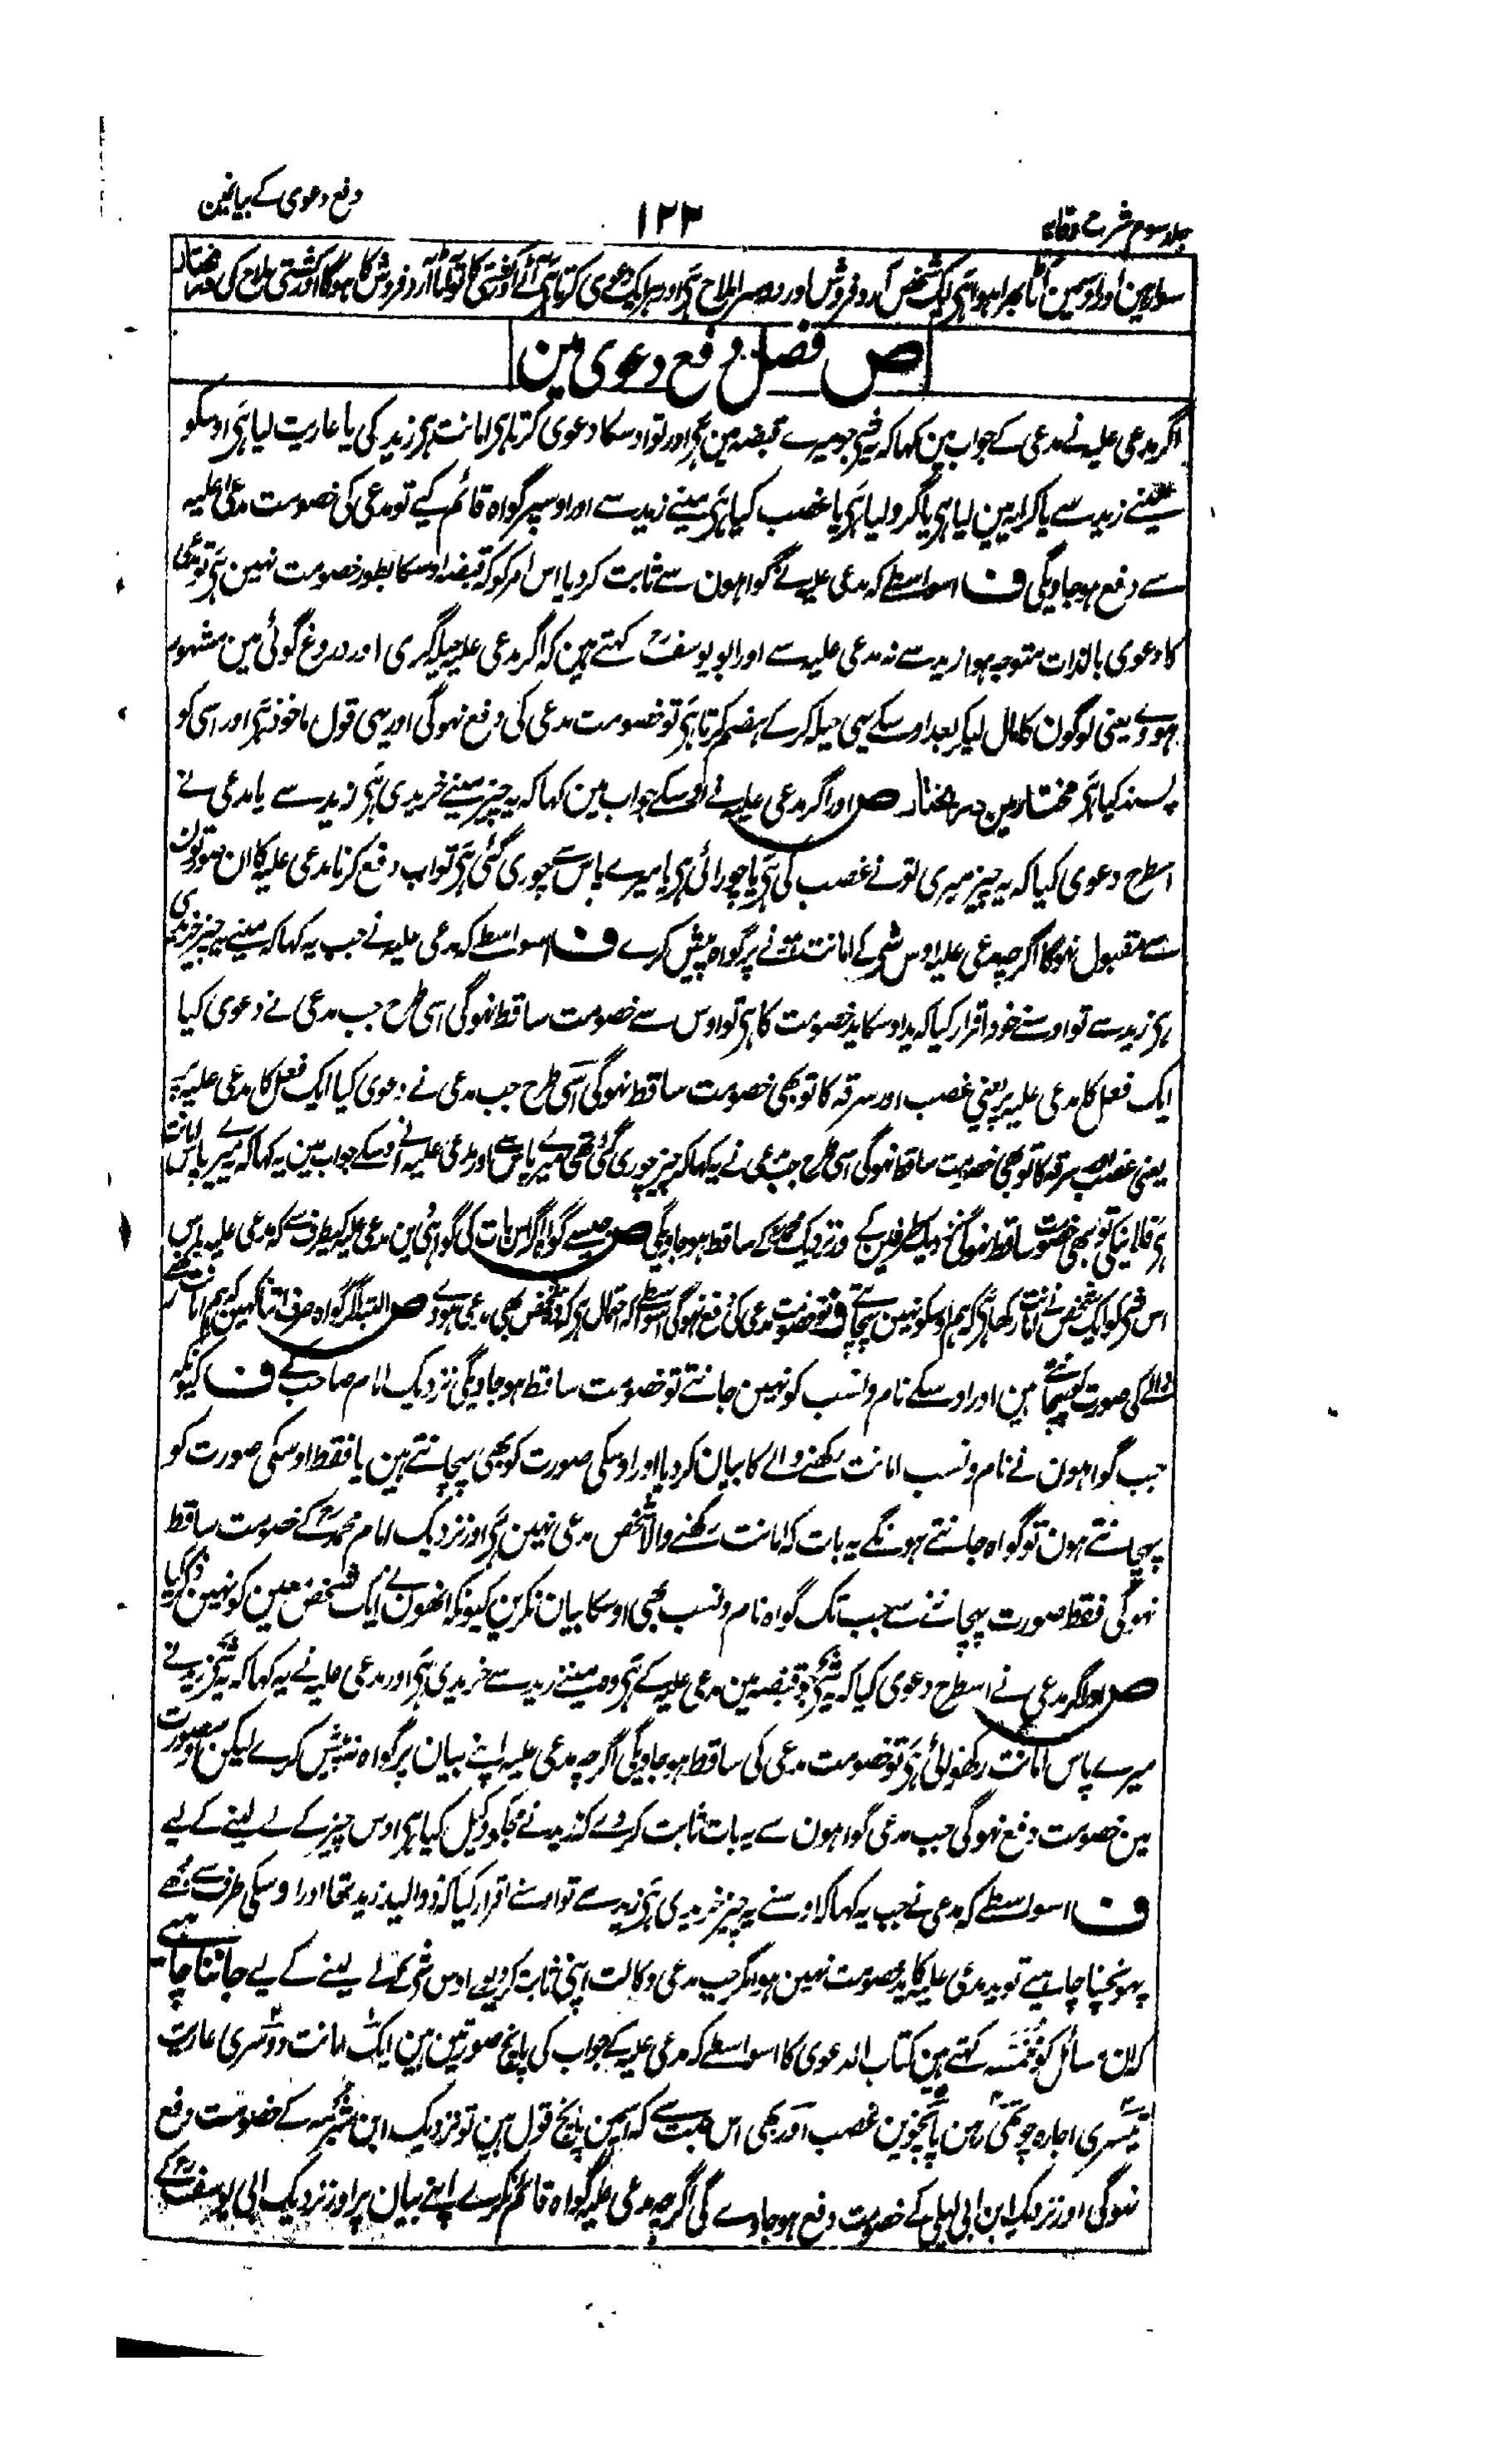 جلد سوم شرح وقایہ
۱۲۳
دفع دعوی کے بیانمین
سوارہین اور اوسمین آٹا بھرا ہوا ہی ایک شخص آرد فروش اور دوسرا ملاح ہی اور ہر ایک دعوی کرتا ہی آٹے اور کشتی کا تو آٹا آرد فروش کا ہوگا اور کشتی ملاح کی
ص فصل دفع دعوی مین
اگر مدعی علیہ نے مدعی کے جواب مین کہا کہ یہ شی جو میرے قبضہ مین ہی اور تو اوسکا دعوی کرتا ہی امانت ہی زید کی یا عاریت لیا ہی اوسکو
مینے زید سے یا کرایہ مین لیا ہی یا گرو لیا ہی یا غصب کیا ہی مینے زید سے اور اوسپر گواہ قائم کیے تو مدعی کی خصومت مدعی علیہ
سے دفع ہوجاویگی ف اسواسطے کہ مدعی علیہ نے گواہون سے ثابت کردیا اس امر کو کہ قبضہ اوسکا بطور خصومت نہین ہی تو مدعی
کا دعوی بالذات متوجہ ہوا زید سے نہ مدعی علیہ سے اور ابو یوسفؒ کہتے ہین کہ اگر مدعی علیہ حیلہ گری اور دروغ گوئی مین مشہور
ہووے یعنی لوگون کا مال لیکر بعد اوسکے یہی حیلہ کرکے ہضم کرتا ہی تو خصومت مدعی کی دفع نہوگی اور یہی قول ماخوذ ہی اور اسی کو
پسند کیا ہی مختار مین درمختار ص اور اگر مدعی علیہ نے اوسکے جواب مین کہا کہ یہ چیز مینے خریدی ہی زید سے یا مدعی نے
اسطرح دعوی کیا کہ یہ چیز میری تونے غصب کی ہی یا چورائی ہی یا میرے پاس سے چوری گئی ہی تو اب دفع کرنا مدعی علیہ کا ان صورتون
سے مقبول نہوگا اگرچہ مدعی علیہ اوس شی کے امانت ہونے پر گواہ پیش کرے ف اسواسطے کہ مدعی علیہ نے جب یہ کہا کہ مینے یہ چیز خریدی
ہی زید سے تو اوسنے خود اقرار کیا کہ ید اوسکا ید خصومت کا ہی تو اوس سے خصومت ساقط نہوگی اسی طرح جب مدعی نے دعوی کیا
ایک فعل کا مدعی علیہ پر یعنی غصب اور سرقہ کا تو بھی خصومت ساقط نہوگی اسی طرح جب مدعی نے دعوی کیا ایک فعل کا مدعی علیہ پر
یعنی غصب اور سرقہ کا تو بھی خصومت ساقط نہوگی اسی طرح جب مدعی نے یہ کہا کہ چیز چوری گئی تھی میرے پاس سے اور مدعی علیہ نے اوسکے جواب مین یہ کہا کہ میرے پاس امانت
ہی فلانیکی تو بھی خصومت ساقط نہوگی نزدیک طرفین کے اور نزدیک محمد کے ساقط ہوجاویگی ص جیسے گواہ اگر اس بات کی گواہی دین مدعی علیہ کیطرف سے کہ مدعی علیہ پاس
اس شی کو ایک شخص نے امانت رکھا ہی کہ ہم اوسکو نہین پہچانتے ف تو خصومت مدعی کی دفع نہوگی اسواسطے کہ احتمال ہی کہ وہ شخص بھی مدعی ہووے ص البتہ اگر گواہ صرف اتنا کہین کہ ہم امانت رکھنے
والے کی صورت کو پہچانتے ہین اور اوسکے نام و نسب کو نہین جانتے تو خصومت ساقط ہوجاویگی نزدیک امام صاحب کے ف کیونکہ
جب گواہون نے نام و نسب امانت رکھنے والے کا بیان کردیا اور اوسکی صورت کو بھی پہچانتے ہین یا فقط اوسکی صورت کو
پہچانتے ہون تو گواہ جانتے ہونگے یہ بات کہ امانت رکھنے والا شخص مدعی نہین ہی اور نزدیک امام محمدؒ کے خصومت ساقط
نہوگی فقط صورت پہچاننے سے جب تک گواہ نام و نسب بھی اوسکا بیان نکرین کیونکہ انھون نے ایک شخص معین کو نہین ذکر کیا
ص اور اگر مدعی نے اسطرح دعوی کیا کہ یہ شی جو قبضہ مین مدعی علیہ کے ہی وہ مینے زید سے خریدی ہی اور مدعی علیہ نے یہ کہا کہ یہ شی زید نے
میرے پاس امانت رکھوائی ہی تو خصومت مدعی کی ساقط ہوجاویگی اگرچہ مدعی علیہ اپنے بیان پر گواہ نہ پیش کرے لیکن اوس صورت
مین خصومت دفع نہوگی جب مدعی گواہون سے یہ بات ثابت کردے کہ زید نے مجکو وکیل کیا ہی اوس چیز کے لے لینے کے لیے
ف اسواسطے کہ مدعی نے جب یہ کہا کہ اوسنے یہ چیز خریدی ہی زید سے تو اوسنے اقرار کیا کہ ذوالید زید تھا اور اوسکی طرف سے مجھے
پہونچنا چاہیے تو ید مدعی علیہ کا ید خصومت نہین ہوا مگر جب مدعی وکالت اپنی ثابت کردیوے اوس شی کے لے لینے کے لیے جاننا چاہیے
کہ ان مسائل کو مخمسہ کہتے ہین کتاب الدعوی کا اسواسطے کہ مدعی علیہ کے جواب کی پانچ صورتین ہین ایک امانت دوسری عاریت
تیسری اجارہ چوتھی رہن پانچوین غصب اور بھی اس جہت سے کہ اسمین پانچ قول ہین تو نزدیک ابن شبرمہ کے خصومت دفع
نہوگی اور نزدیک ابن ابی لیلی کے خصومت دفع ہوجاوے گی اگرچہ مدعی علیہ گواہ قائم نکرے اپنے بیان پر اور نزدیک ابی یوسفؒ کے